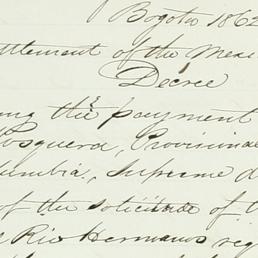 Bogota 1862
ttlement of the Mexi
Decree
ng the payment
osquera, Provisional
lumbia, Supreme d
of the solicitude of t
Rio Hermanos reg